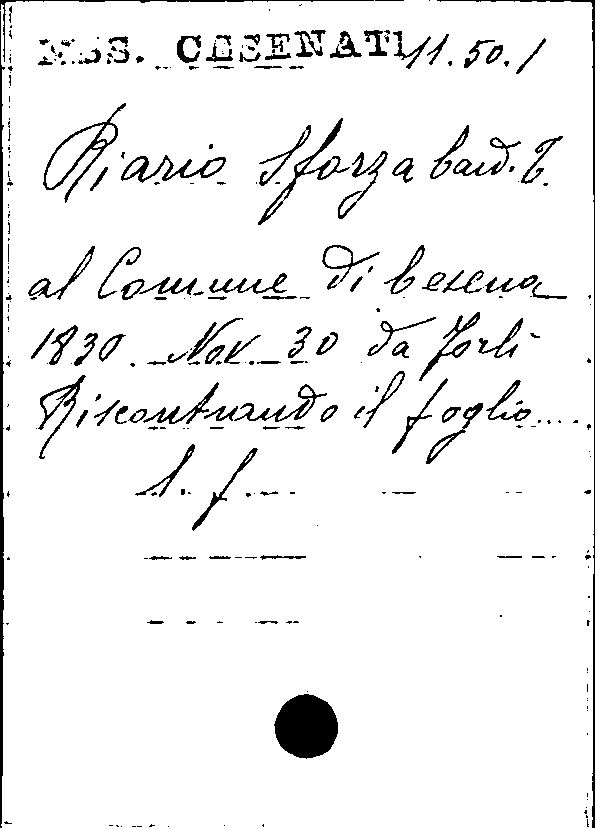 MSS. CESENATI 11.50.1
Riario Sforza Card. T.
al Comune di Cesena
1830. Nov. 30 da Forlì
Riscontrando il foglio....
l. f.